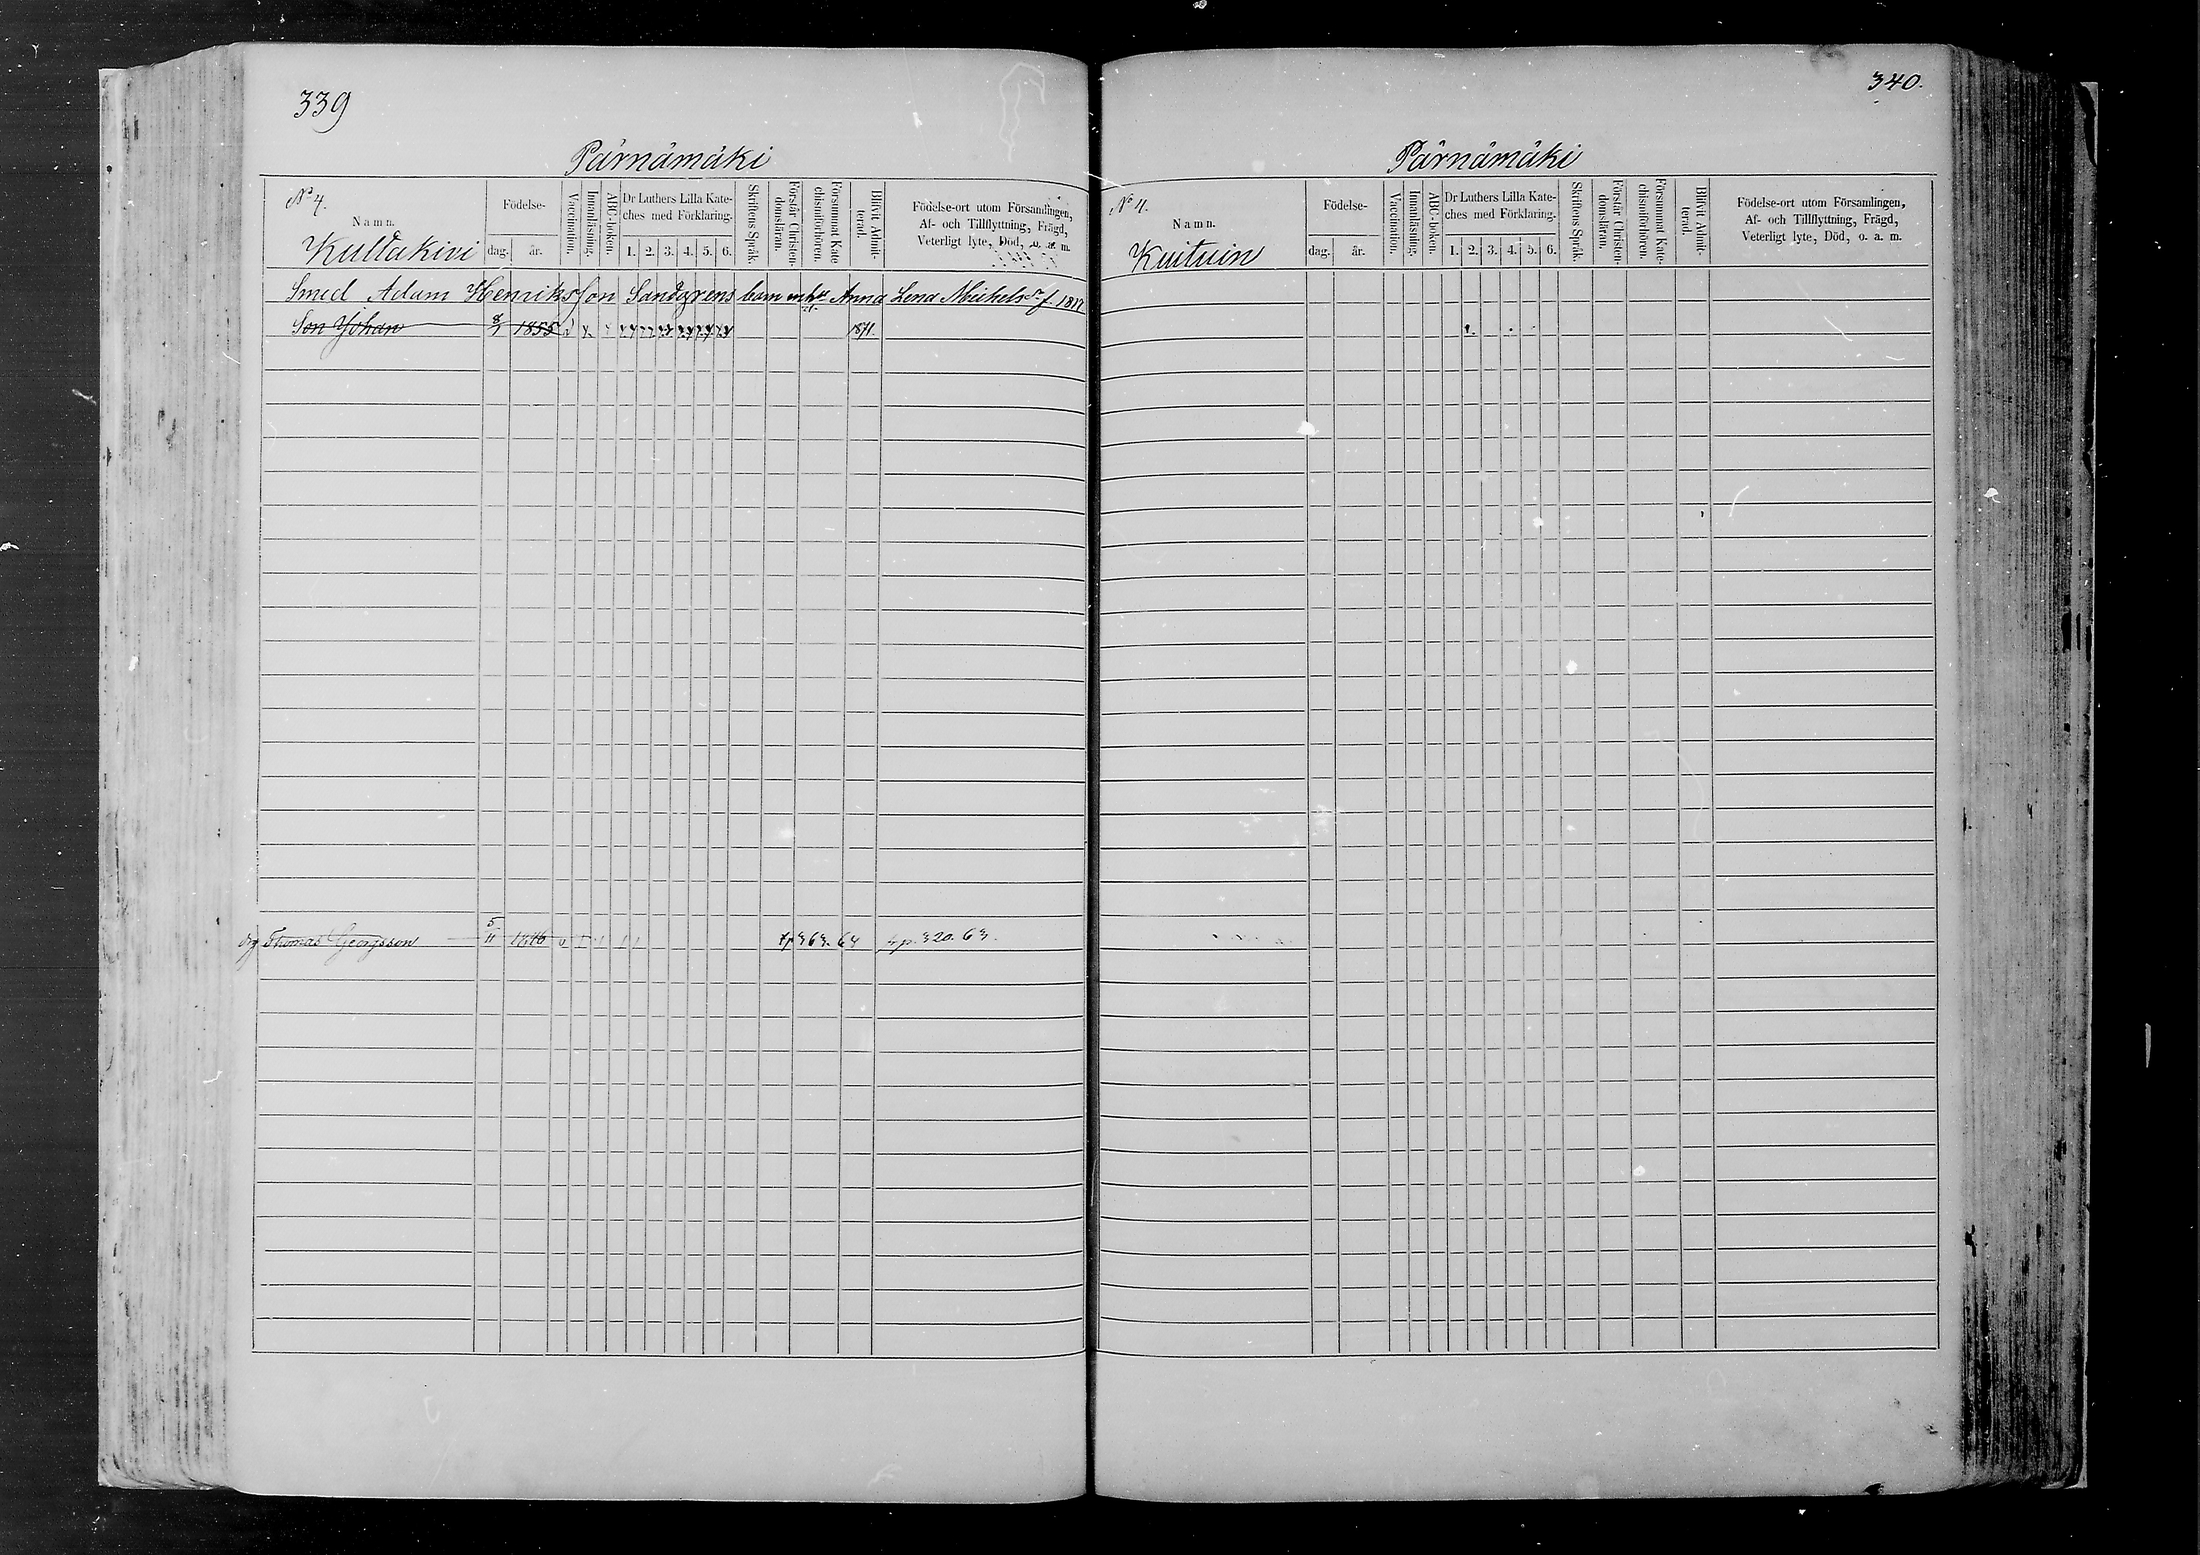 339
Pärnämäki
No 4.
Namn.
Kultakivi
Födelse-
dag. år.
Vaccination.
Innanläsning.
ABC-boken.
Dr Luthers Lilla Kate-
ches med Förklaring.
1. 2. 3. 4. 5. 6.
Skriftens Språk.
Förstår Christen-
domsläran.
Försummat Kate
chismiförhören.
Blifvit Admit-
terad.
Födelse-ort utom Församlingen,
Af- och Tillflyttning, Frägd,
Veterligt lyte, Död, o. a. m.
Smed Adam Henriksson Sandgrens barn Anna Lena Michelsdr f. 1817
Son Johan 8/1 1855 1871.
drg Thomas Georgsson 5/11 1846 fr 363. 64 fr p. 320. 63.
340.
Pärnämäki
No 4.
Namn.
Kuituin
Födelse-
dag. år.
Vaccination.
Innanläsning.
ABC-boken.
Dr Luthers Lilla Kate-
ches med Förklaring.
1. 2. 3. 4. 5. 6.
Skriftens Språk.
Förstår Christen-
domsläran.
Försummat Kate-
chismiförhören.
Blifvit Admit-
terad.
Födelse-ort utom Församlingen,
Af- och Tillflyttning, Frägd,
Veterligt lyte, Död, o. a. m.